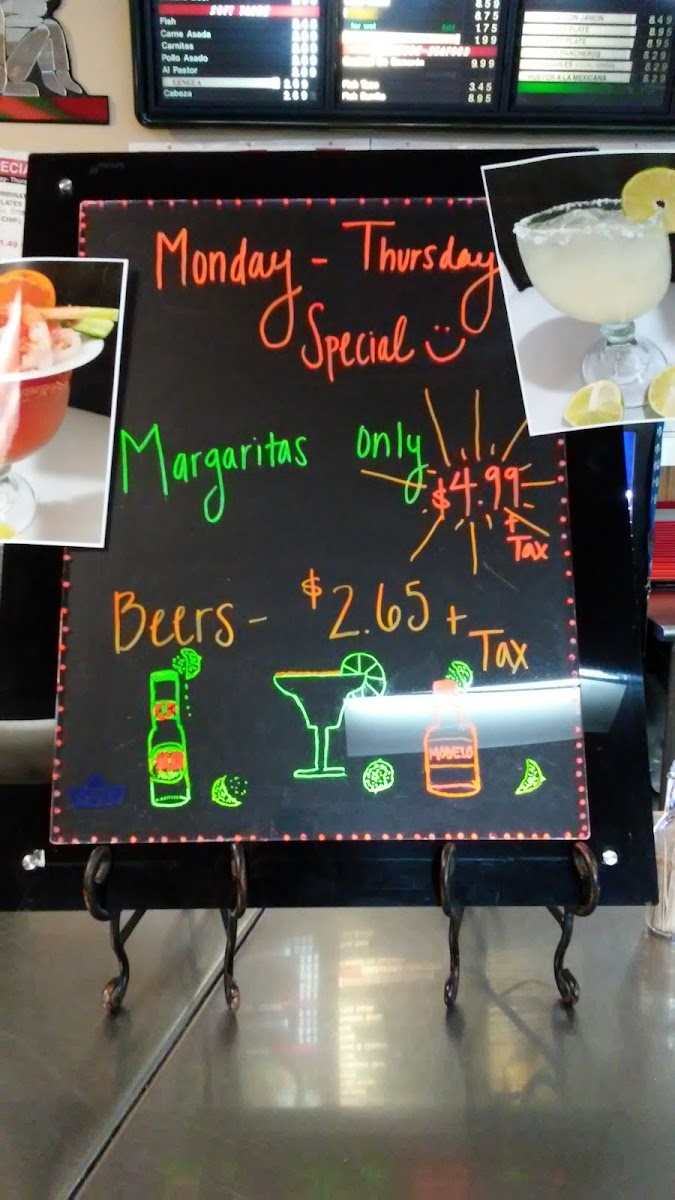 SOFT TACOS
Fish
Carne Asada
Carnitas
Pollo Asado
Al Pastor
LENGUA
Cabeza 2.69
8.75
for wet Add 1.75
1.99
9.99
Fish Taco 3.45
Fish Burrito 8.95
JAMON 8.49
PLATE 8.95
PLATE 8.95
RANCHEROS 8.29
8.29
HUEVOS A LA MEXICANA 8.29
Monday - Thursday
Special
Margaritas only $4.99
+
Tax
Beers - $2.65 +
Tax
XX
MODELO